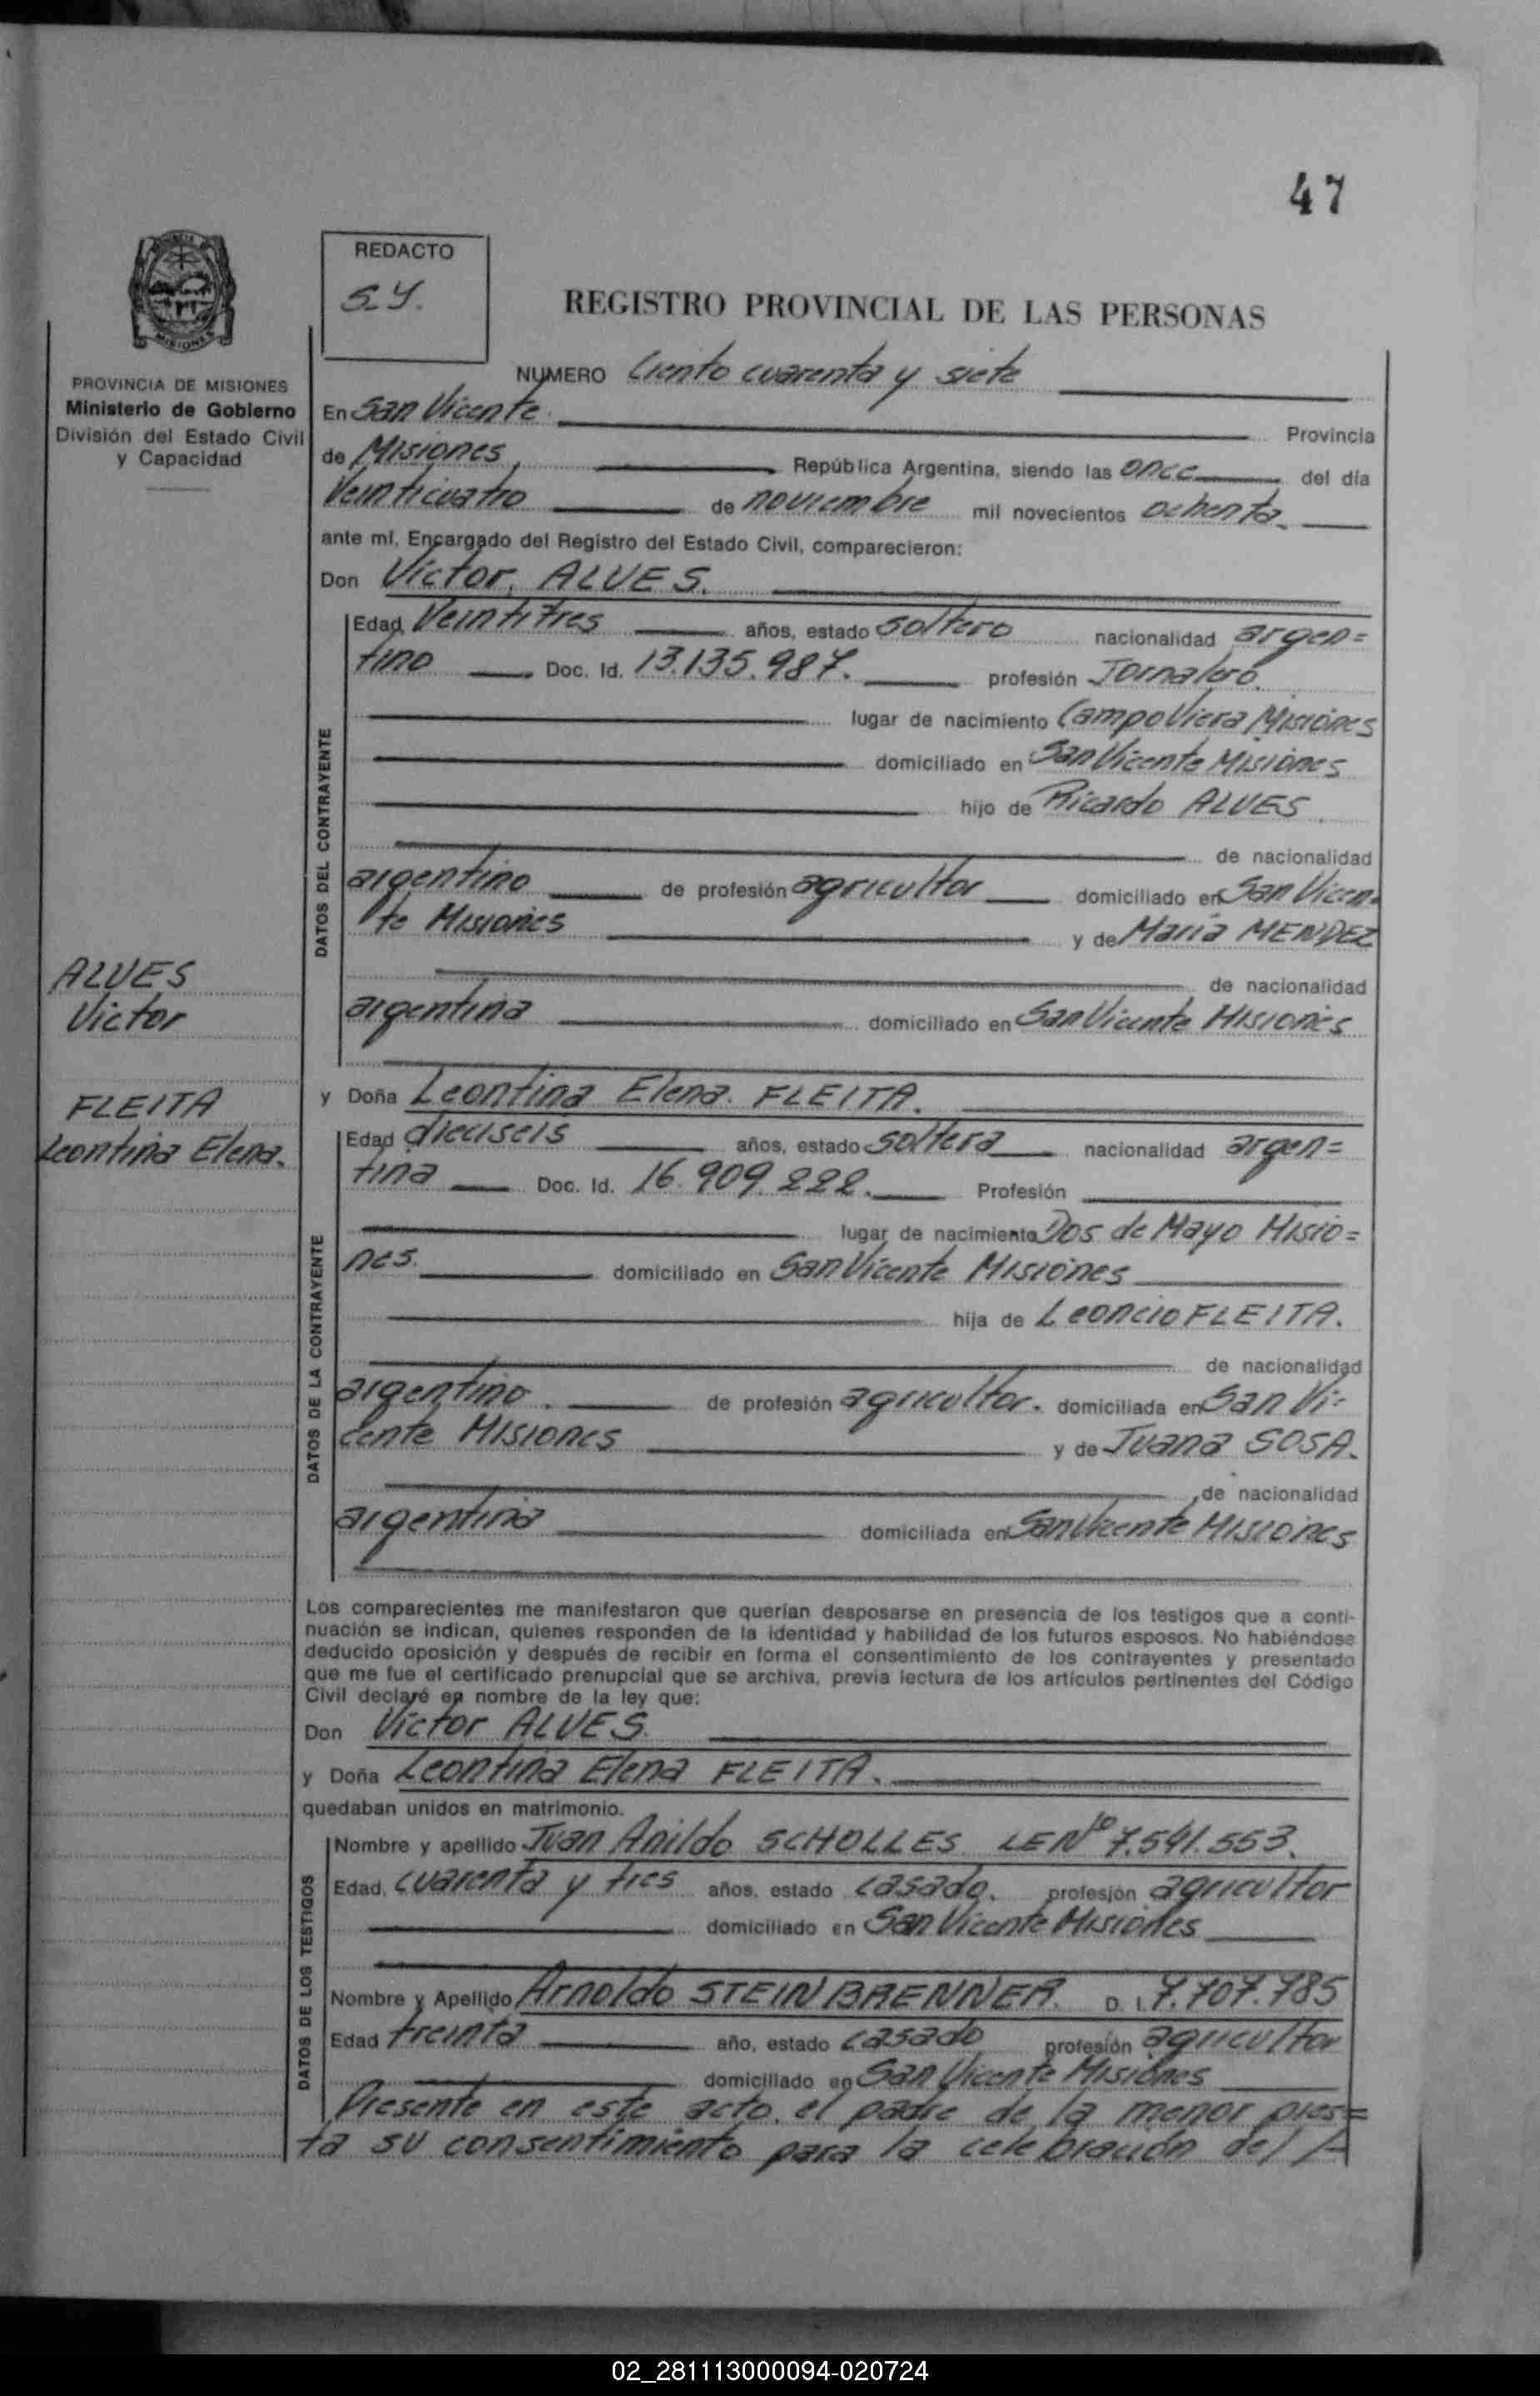 47
REDACTO
S.Y.
REGISTRO PROVINCIAL DE LAS PERSONAS
MISIONES
PROVINCIA DE MISIONES
Ministerio de Gobierno
División del Estado Civil
y Capacidad
ALVES
Victor
FLEITA
Leontina Elena.
NUMERO Ciento cuarenta y siete
En San Vicente. Provincia
de Misiones, República Argentina, siendo las once del día
Veinticuatro de noviembre mil novecientos ochenta.
ante mí, Encargado del Registro del Estado Civil, comparecieron:
Don Víctor, ALVES.
DATOS DEL CONTRAYENTE
Edad Veintitres años, estado soltero nacionalidad argen=
tino Doc. Id. 13.135.987. profesión Jornalero.
lugar de nacimiento Campo Viera Misiones
domiciliado en San Vicente Misiones
hijo de Ricardo ALVES
de nacionalidad
argentino de profesión agricultor domiciliado en San Vicen=
te Misiones y de María MENDEZ
de nacionalidad
argentina domiciliado en San Vicente Misiones
y Doña Leontina Elena. FLEITA.
DATOS DE LA CONTRAYENTE
Edad dieciseis años, estado soltera nacionalidad argen=
tina Doc. Id. 16.909.222. Profesión
lugar de nacimiento Dos de Mayo Misio=
nes. domiciliado en San Vicente Misiones
hija de Leoncio FLEITA.
de nacionalidad
argentino. de profesión agricultor. domiciliada en San Vi=
cente Misiones y de Juana SOSA.
de nacionalidad
argentina domiciliada en San Vicente Misiones
Los comparecientes me manifestaron que querían desposarse en presencia de los testigos que a conti-
nuación se indican, quienes responden de la identidad y habilidad de los futuros esposos. No habiéndose
deducido oposición y después de recibir en forma el consentimiento de los contrayentes y presentado
que me fue el certificado prenupcial que se archiva, previa lectura de los artículos pertinentes del Código
Civil declaré en nombre de la ley que:
Don Víctor ALVES.
y Doña Leontina Elena FLEITA.
quedaban unidos en matrimonio.
DATOS DE LOS TESTIGOS
Nombre y apellido Juan Anildo SCHOLLES. LE Nº 7.541.553.
Edad, cuarenta y tres años, estado casado. profesión agricultor
domiciliado en San Vicente Misiones
Nombre y Apellido Arnoldo STEINBRENNER. D. I. 7.707.785
Edad treinta año, estado casado profesión agricultor
domiciliado en San Vicente Misiones
Presente en este acto, el padre de la menor pres=
ta su consentimiento para la celebración del
02_281113000094-020724